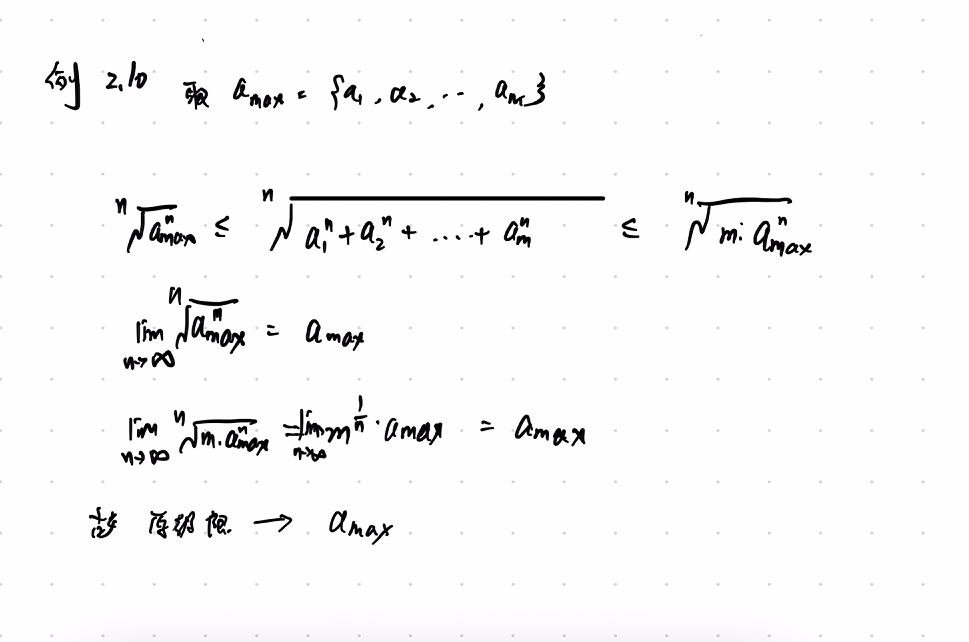 例 2.10 取 a_max = {a_1, a_2, ..., a_m}
ⁿ√(a_max^n) ≤ ⁿ√(a_1^n + a_2^n + ....+ a_m^n) ≤ ⁿ√(m·a_max^n)
lim_{n→∞} ⁿ√(a_max^n) = a_max
lim_{n→∞} ⁿ√(m·a_max^n) = lim_{n→∞} m^{1/n}·a_max = a_max
故 原极限 → a_max